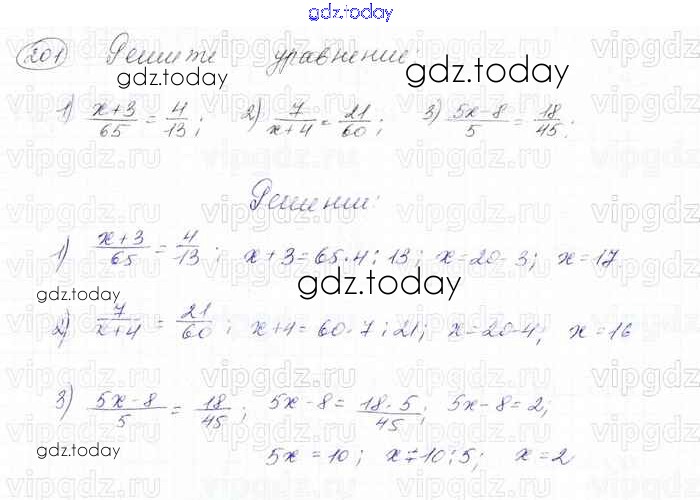 gdz.today
201 Решите уравнение:
gdz.today
1) (x+3)/65 = 4/13; 2) 7/(x+4) = 21/60; 3) (5x-8)/5 = 18/45;
Решение:
1) (x+3)/65 = 4/13; x+3=65·4:13; x=20-3; x=17
gdz.today
gdz.today
2) 7/(x+4) = 21/60; x+4=60·7:21; x=20-4; x=16
3) (5x-8)/5 = 18/45; 5x-8= (18·5)/45; 5x-8=2;
gdz.today
5x=10; x=10:5; x=2